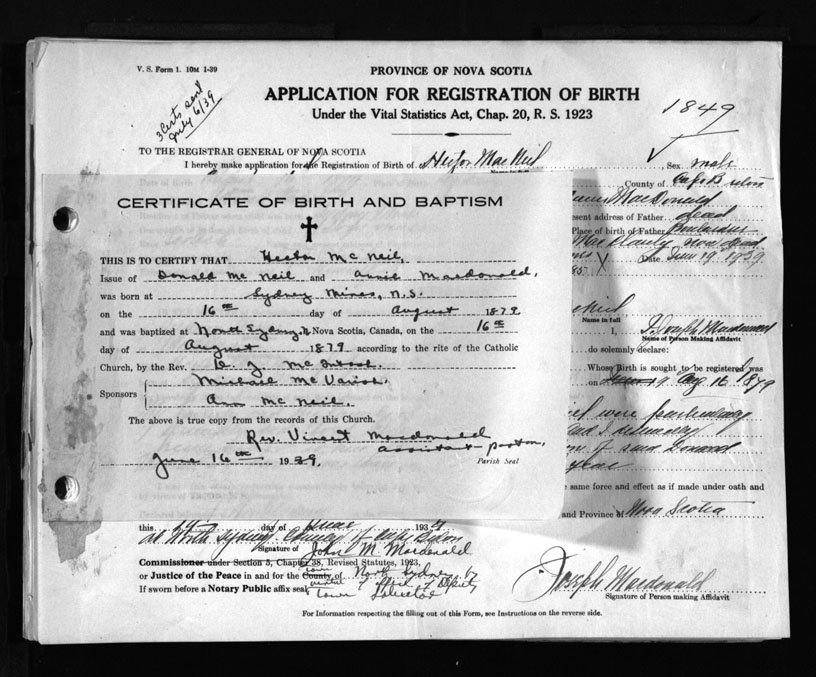 V. S. Form 1. 10M 1-39
3 Certs sent
July 6/39
PROVINCE OF NOVA SCOTIA
APPLICATION FOR REGISTRATION OF BIRTH
Under the Vital Statistics Act, Chap. 20, R. S. 1923
1849
TO THE REGISTRAR GENERAL OF NOVA SCOTIA
I hereby make application for Registration of Birth of Hector MacNeil Sex male
County of Cape Breton
MacDonald
present address of Father dead
Place of birth of Father
now dead
Date June 19, 1939
CERTIFICATE OF BIRTH AND BAPTISM
THIS IS TO CERTIFY THAT Hector McNeil,
Issue of Donald McNeil and Annie Macdonald,
was born at Sydney Mines, N.S.
on the 16th day of August 1879
and was baptized at North Sydney, N. Nova Scotia, Canada, on the 16th
day of August 1879 according to the rite of the Catholic
Church, by the Rev. D. J. McIntosh.
Sponsors Michael McVarish.
Ann McNeil.
The above is true copy from the records of this Church.
Rev. Vincent Macdonald
assistant pastor,
June 16th 1939. Parish Seal
Name in full
I, Joseph Macdonald
Name of Person Making Affidavit
do solemnly declare:
Whose Birth is sought to be registered was
on Aug 16 1879
same force and effect as if made under oath and
and Province of Nova Scotia
this day of June 1939
at North Sydney County of Cape Breton
Signature of John M. Macdonald
Commissioner under Section 5, Chapter 38, Revised Statutes, 1923,
or Justice of the Peace in and for the County of Town North Sydney
If sworn before a Notary Public affix seal
Joseph Macdonald
Signature of Person making Affidavit
For Information respecting the filling out of this Form, see Instructions on the reverse side.